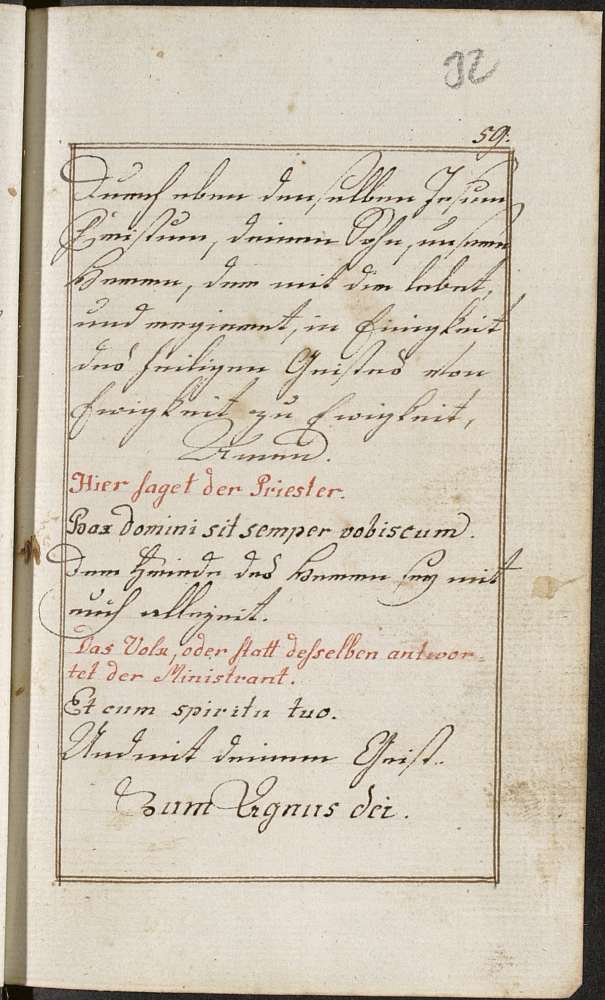 32
59.
Durch eben denselben Jesum
Christum, deinen Sohn, unsern
Herren, der mit dir lebet,
und regieret, in Einigkeit
des heiligen Geistes von
Ewigkeit zu Ewigkeit,
Amen.
Hier saget der Priester.
Pax Domini sit semper vobiscum.
Der Friede des Herren sey mit
euch allezeit.
Das Volk, oder statt desselben antwor
tet der Ministrant.
Et cum spiritu tuo.
Und mit deinem Geist.
Zum Agnus dei.